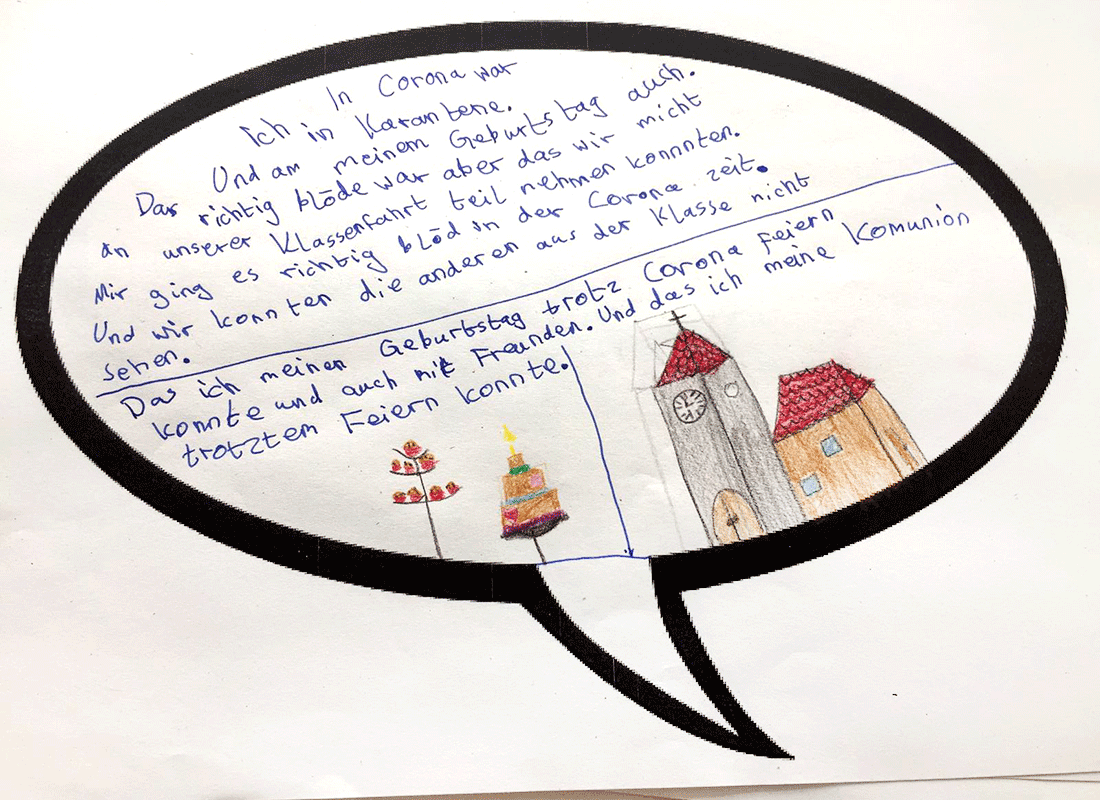 In Corona war
Ich in Karantene.
Und am meinem Geburtstag auch.
Das richtig blöde war aber das wir nicht
an unserer Klassenfahrt teil nehmen konnnten.
Mir ging es richtig blöd in der Corona zeit.
Und wir konnten die anderen aus der Klasse nicht
sehen.
Das ich meinen Geburtstag trotz Corona feiern
konnte und auch mit Freunden. Und das ich meine Komunion
trotztem Feiern konnte.